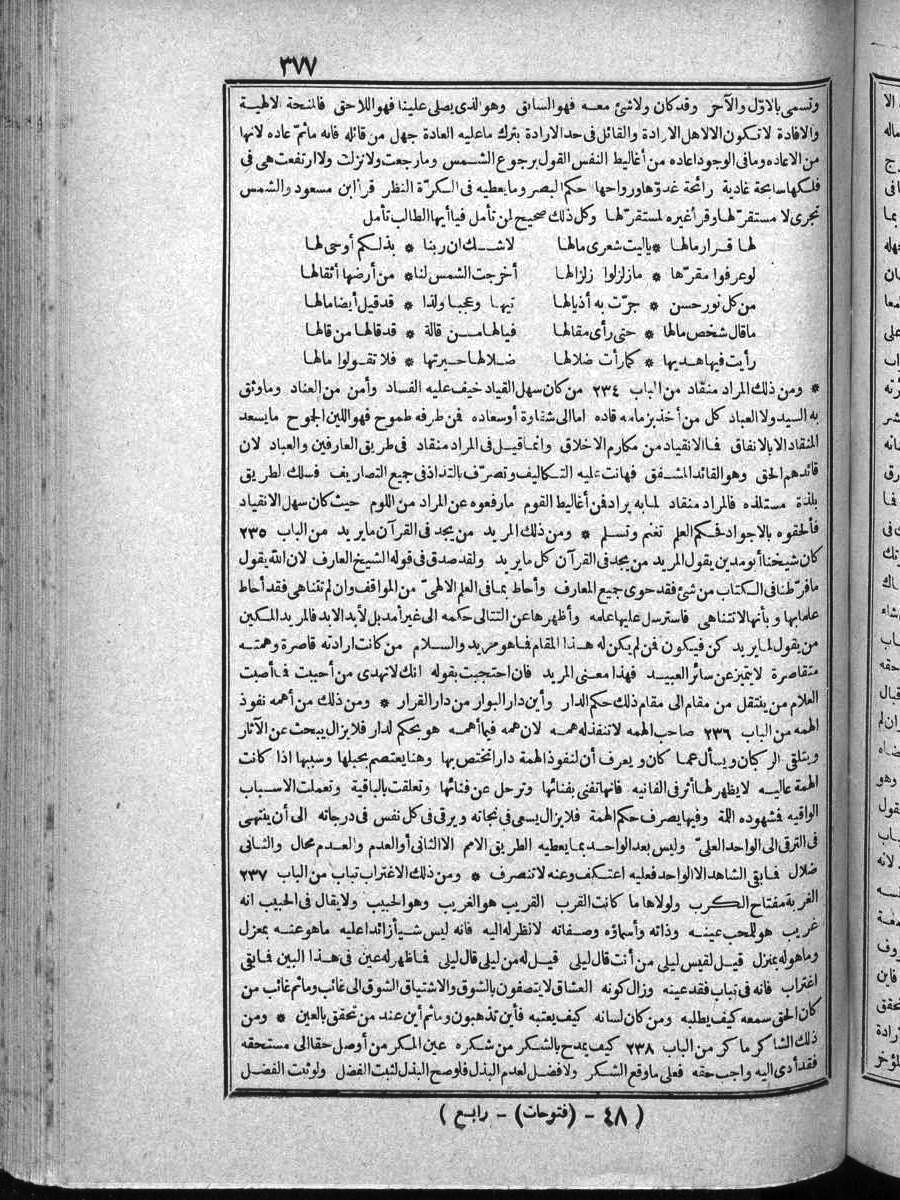 ٣٧٧
وتسمى بالاوّل والآخر وقد كان ولا شئ معه فهو السابق وهو الذى يصلى علينا فهو اللاحق فالمنحة الالهية
والافادة لا تكون الا لاهل الارادة والقائل فى حد الارادة بترك ما عليه العادة جهل من قائله فانه ما ثمّ عاده لانها
من الاعاده وما فى الوجود اعاده من أغاليط النفس القول برجوع الشمس وما رجعت ولا نزلت ولا ارتفعت هى فى
فلكها سابحة غادية رائحة غدوّها ورواحها حكم البصر وما يعطيه فى الكرّة النظر قرأ ابن مسعود والشمس
تجرى لا مستقرّ لها وقرأ غيره لمستقرّ لها وكل ذلك صحيح لمن تأمل فيا أيها الطالب تأمل
لها قرار مالها * ياليت شعرى مالها لاشك ان ربنا * بذلكم أوحى لها
لو عرفوا مقرّها * ما زلزلوا زلزالها أخرجت الشمس لنا * من أرضها أثقالها
من كل نور حسن * جرّت به أذيالها تيها وعجبا ولذا * قد قيل أيضا مالها
ما قال شخص مالها * حتى رأى مقالها فيالها من قالة * قد قالها من قالها
رأيت فيها هديها * كما رأت ضلالها ضلالها حيرتها * فلا تقولوا مالها
* ومن ذلك المراد منقاد من الباب ٢٣٤ من كان سهل القياد خيف عليه الفساد وأمن من العناد وما وثق
به السيد ولا العباد كل من أخذ بزمامه قاده اما الى شقاوة أو سعاده فمن طرفه طموح فهو اللين الجموح ما يسعد
المنقاد الا بالاتفاق فما الانقياد من مكارم الاخلاق وانما قيل فى المراد منقاد فى طريق العارفين والعباد لان
قائدهم الحق وهو القائد المشفق فهانت عليه التكاليف وتصرّف بالتذاذ فى جميع التصاريف فسلك الطريق
بلذة مستلذه فالمراد منقاد لما به يراد فمن أغاليط القوم ما رفعوه عن المراد من اللوم حيث كان سهل الانقياد
فألحقوه بالاجواد فحكم العلم تغنم وتسلم * ومن ذلك المريد من يجد فى القرآن ما يريد من الباب ٢٣٥
كان شيخنا أبو مدين يقول المريد من يجد فى القرآن كل ما يريد ولقد صدق فى قوله الشيخ العارف لان الله يقول
ما فرّطنا فى الكتاب من شئ فقد حوى جميع المعارف وأحاط بما فى العلم الالهىّ من المواقف وان لم تتناهى فقد أحاط
علما بها وبأنها لا تتناهى فاسترسل عليها علمه وأظهرها عن التتالى حكمه الى غير أمد بل لأبد الابد فالمريد المكين
من يقول لما يريد كن فيكون فمن لم يكن له هذا المقام فما هو مريد والسلام من كانت ارادته قاصرة وهمته
متقاصرة لا يتميز عن سائر العبيد فهذا معنى المريد فان احتجبت بقوله انك لا تهدى من أحببت فما أصبت
العلام من ينتقل من مقام الى مقام ذلك حكم الدار وأين دار البوار من دار القرار * ومن ذلك من أهمه نفوذ
الهمه من الباب ٢٣٦ صاحب الهمه لا تنفذ له همه لان همه فيما أهمه هو بحكم الدار فلا يزال يبحث عن الآثار
ويتلقى الركبان ويسأل عما كان ويعرف أن لنفوذ الهمة دار تختص بها وهنا يعتصم بحبلها وسببها اذا كانت
الهمة عاليه لا يظهر لها أثر فى الفانيه فانها تفنى بفنائها وترحل عن فنائها وتعلقت بالباقية وتعملت الاسباب
الواقيه فشهوده اللمة وفيها يصرف حكم الهمة فلا يزال يسعى فى نجاته ويرقى فى كل نفس فى درجاته الى أن ينتهى
فى الترقى الى الواحد العلىّ وليس بعد الواحد بما يعطيه الطريق الامم الا الثانى أو العدم والعدم محال والثانى
ضلال فما بقى الشاهد الا الواحد فعليه اعتكف وعنه لا تنصرف * ومن ذلك الاغتراب تباب من الباب ٢٣٧
الغربة مفتاح الكرب ولولاها ما كانت القرب القريب هو الغريب وهو الحبيب ولا يقال فى الحبيب انه
غريب هو للمحب عينه وذاته وأسماؤه وصفاته لا نظر له اليه فانه ليس شيأ زائدا عليه ما هو عنه بمعزل
وما هو له بمنزل قيل لقيس ليلى من أنت قال ليلى قيل له من ليلى قال ليلى فما ظهر له عين فى هذا البين فما بقى
اغتراب فانه فى تباب فقد عينه وزال كونه العشاق لا يتصفون بالشوق والاشتياق الشوق الى غائب وما ثم غائب من
كان الحق سمعه كيف يطلبه ومن كان لسانه كيف يعتبه فأين تذهبون وما ثم أين عند من تحقق بالعين * ومن
ذلك الشاكر ماكر من الباب ٢٣٨ كيف يمدح بالشكر من شكره عين المكر من أوصل حقا الى مستحقه
فقد أدى اليه واجب حقه فعلى ما وقع الشكر ولا فضل لعدم البذل فلو صح البذل لثبت الفضل ولو ثبت الفضل
( ٤٨ - (فتوحات) - رابع )